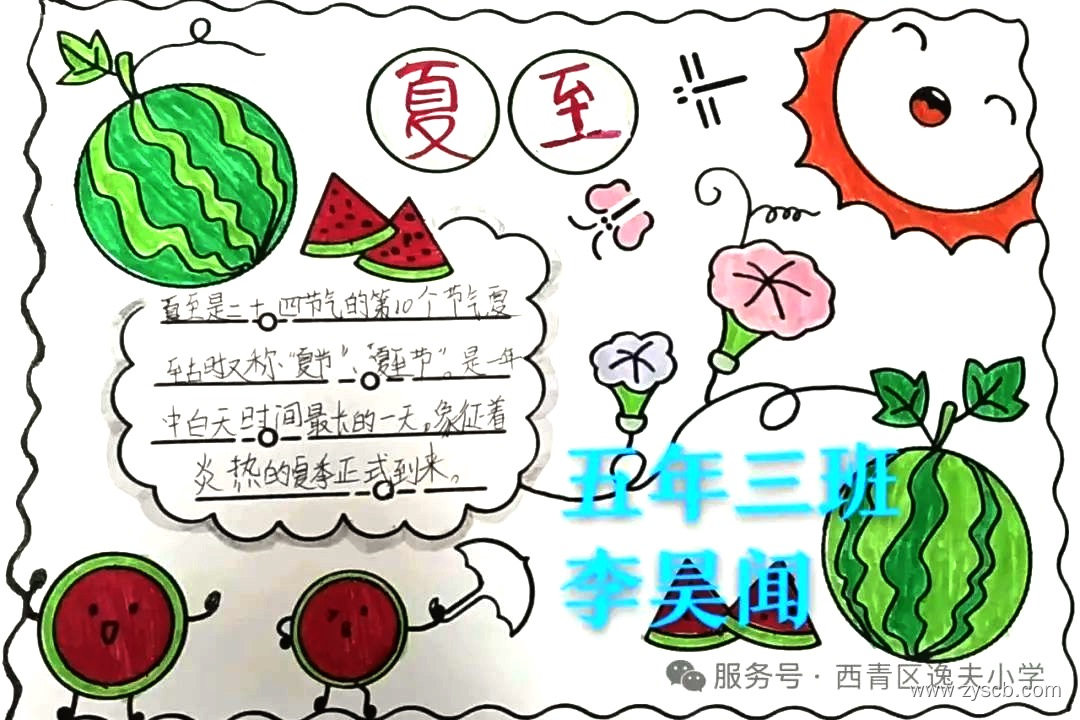 夏至
夏至是二十四节气的第10个节气夏
至古时又称“夏节”、“夏至节”。是一年
中白天时间最长的一天。象征着
炎热的夏季正式到来。
五年三班
李昊闻
服务号·西青区逸夫小学
www.zyscb.com